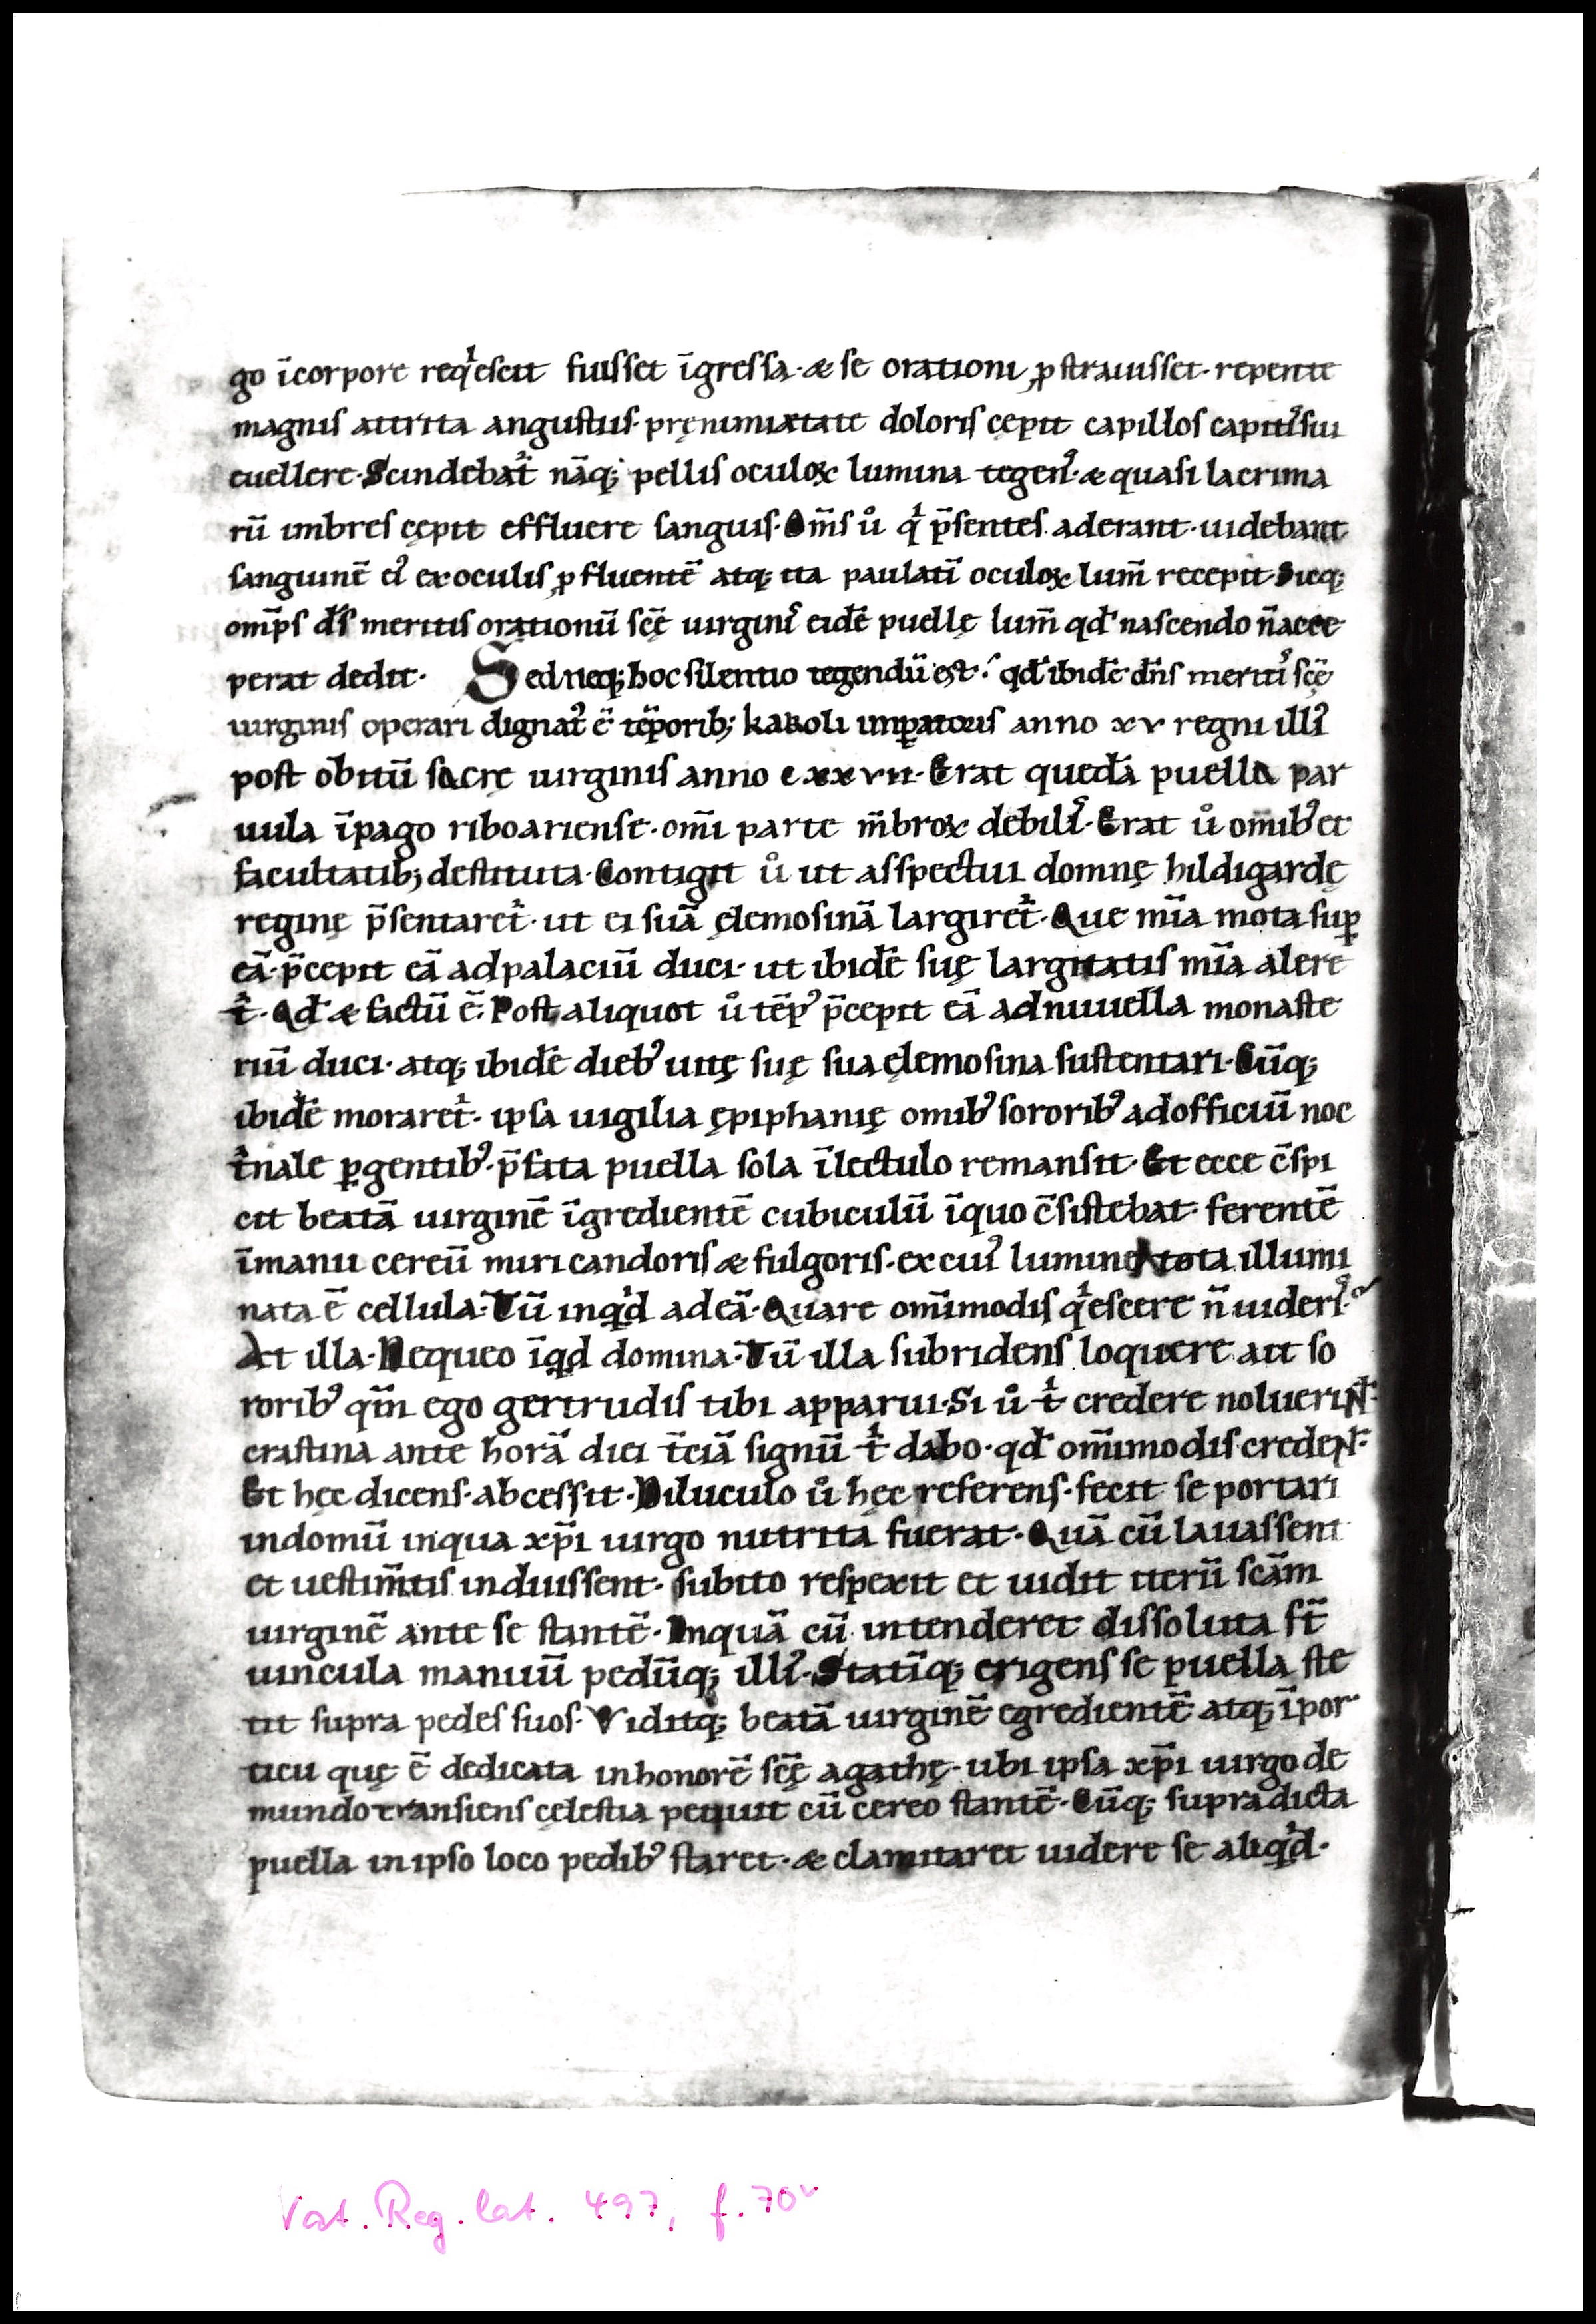 go īcorpore reqͥescit fuisset īgressa· & se orationi ꝓstrauisset· repente
magnis attrita angustiis· pręnimietate doloris cępit capillos capitiſ sui
euellere· Scindebat᷑ nāq; pellis oculoꝝ lumina tegens· & quasi lacrima
rū imbres cępit effluere sanguis· Om̄s ů qͥ p̄sentes aderant· uidebant
sanguinē ei᾽ ex oculis ꝓfluentē atq; ita paulatī oculoꝝ lum̄ recepit· Sicq;
om̄ps d̄s meritis orationū scę̄ uirginis eidē puellę lum̄ qd̄ nascendo n̄ acce
perat dedit· Sed neq; hoc silentio tegendū est· qd̄ ibidē dn̄s meritis scę̄
uirginis operari dignat᷑ ē tēporib; karoli imꝑatoris anno xv regni illi᾽
post obitū sacrę uirginis anno cxxvii· Erat quedā puella par
uula īpago riboariense· om̄i parte m̄broꝝ debilis· Erat ů omib᾽ et
facultatib; destituta· Contigit ů ut asspectui domnę hildigardę
reginę p̄sentaret᷑· ut ei suā ęlemosinā largiret᷑· Que mīa mota suꝑ
eā· p̄cepit eā adpalaciū duci· ut ibidē suę largitatis mīa alere
t᷑· Qd̄ & factū ē· Post aliquot ů tēp᾽ p̄cepit eā adniuuella monaste
riū duci· atq; ibidē dieb᾽ uitę suę sua ęlemosina sustentari· Cūq;
ibidē moraret᷑· ipsa uigilia ępiphanię omib᾽ sororib᾽ adofficiū noc
t᷑nale ꝑgentib᾽· p̄fata puella sola īlectulo remansit· Et ecce c̄spi
cit beatā uirginē īgredientē cubiculū īquo c̄sistebat· ferentē
īmanu cereū miri candoris & fulgoris· ex cui᾽ lumine tota illumi
nata ē cellula· Tū inqͥd adeā· Quare om̄imodis qͥescere n̄ uideris·
At illa· Nequeo īqd domina· Tū illa subridens loquere ait so
rorib᾽ qm̄ ego gertrudis tibi apparui· Si ů tͥ credere nolueriNt·
crastina ante horā diei t̄ciā signū tͥ dabo· qd̄ om̄imodis credeNt·
Et hęc dicens· abcessit· Diluculo ů hęc referens· fecit se portari
indomū inqua xp̄i uirgo nutrita fuerat· Quā cū lauassent
et uestim̄tis induissent· subito respexit et uidit iterū scām
uirginē ante se stantē· Inquā cū intenderet dissoluta st̄
uincula manuū pedūq; illi᾽· Statīq; erigens se puella ste
tit supra pedes suos· Viditq; beatā uirginē egredientē atq; īpor
ticu quę ē dedicata inhonorē scę̄ agathę· ubi ipsa xp̄i uirgo de
mundo transiens cęlestia petiuit cū cereo stantē· Cūq; supradicta
puella in ipso loco pedib᾽ staret· & clamitaret uidere se aliqͥd·
Vat. Reg. lat. 497, f. 70v